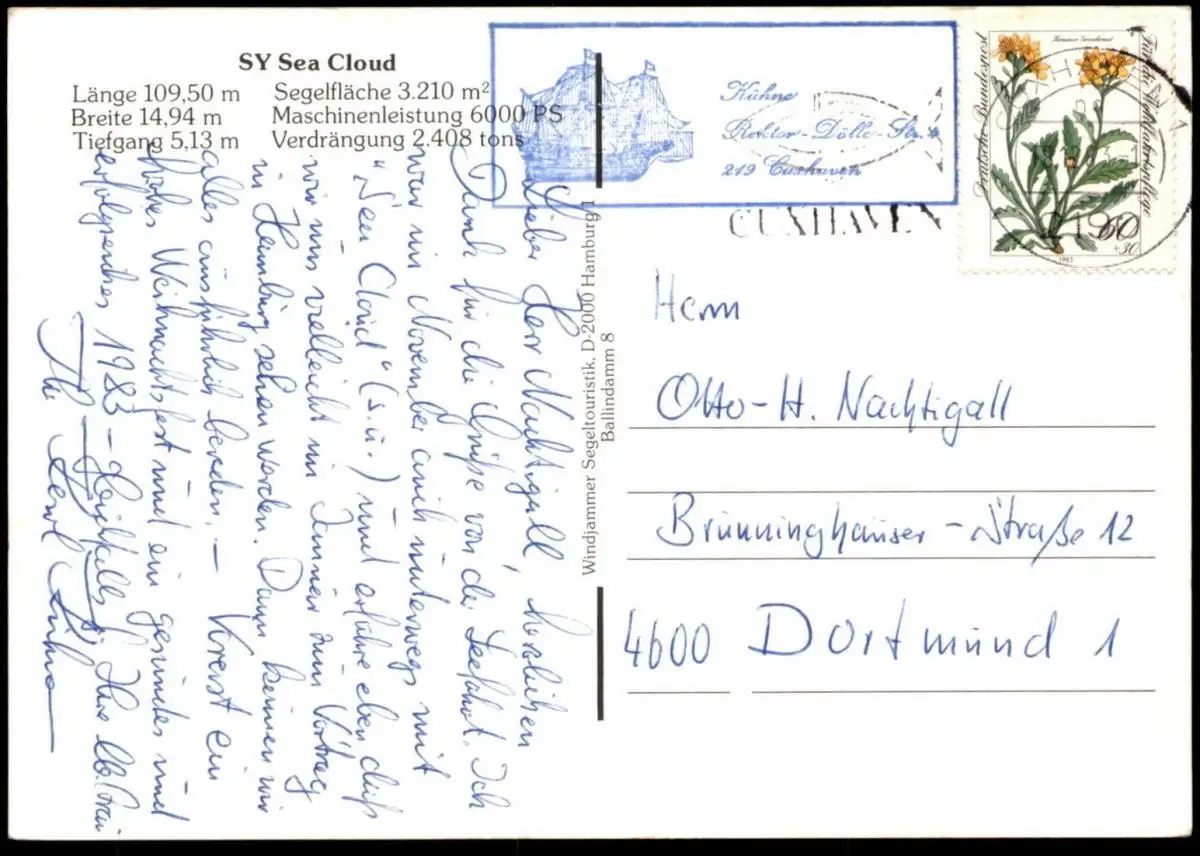 SY Sea Cloud
Länge 109,50 m Segelfläche 3.210 m²
Breite 14,94 m Maschinenleistung 6000 PS
Tiefgang 5,13 m Verdrängung 2.408 tons
Lieber Herr Nachtigall, herzlichen
Dank für die Grüße von der Seefahrt. Ich
war im November auch unterwegs mit
"Sea Cloud" (s.u.) und erfuhr eben, daß
wir uns vielleicht im Jänner zum Vortrag
in Hamburg sehen werden. Dann können wir
alles ausführlich bereden. — Vorerst ein
frohes Weihnachtsfest und ein gesundes und
erfolgreiches 1983 - gleichfalls für Ihre lb. Frau
Ihr
Windjammer Segeltouristik, D-2000 Hamburg 1
Ballindamm 8
Kühne
Rektor-Dölle-Str.
219 Cuxhaven
CUXHAVEN
Deutsche Bundespost
Für die Wohlfahrtspflege
60
+30
1983
Herrn
Otto-H. Nachtigall
Brünninghauser-Straße 12
4600 Dortmund 1